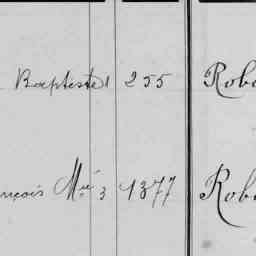 Baptiste 1 255 Rob
nçois Mie 3 1377 Rob